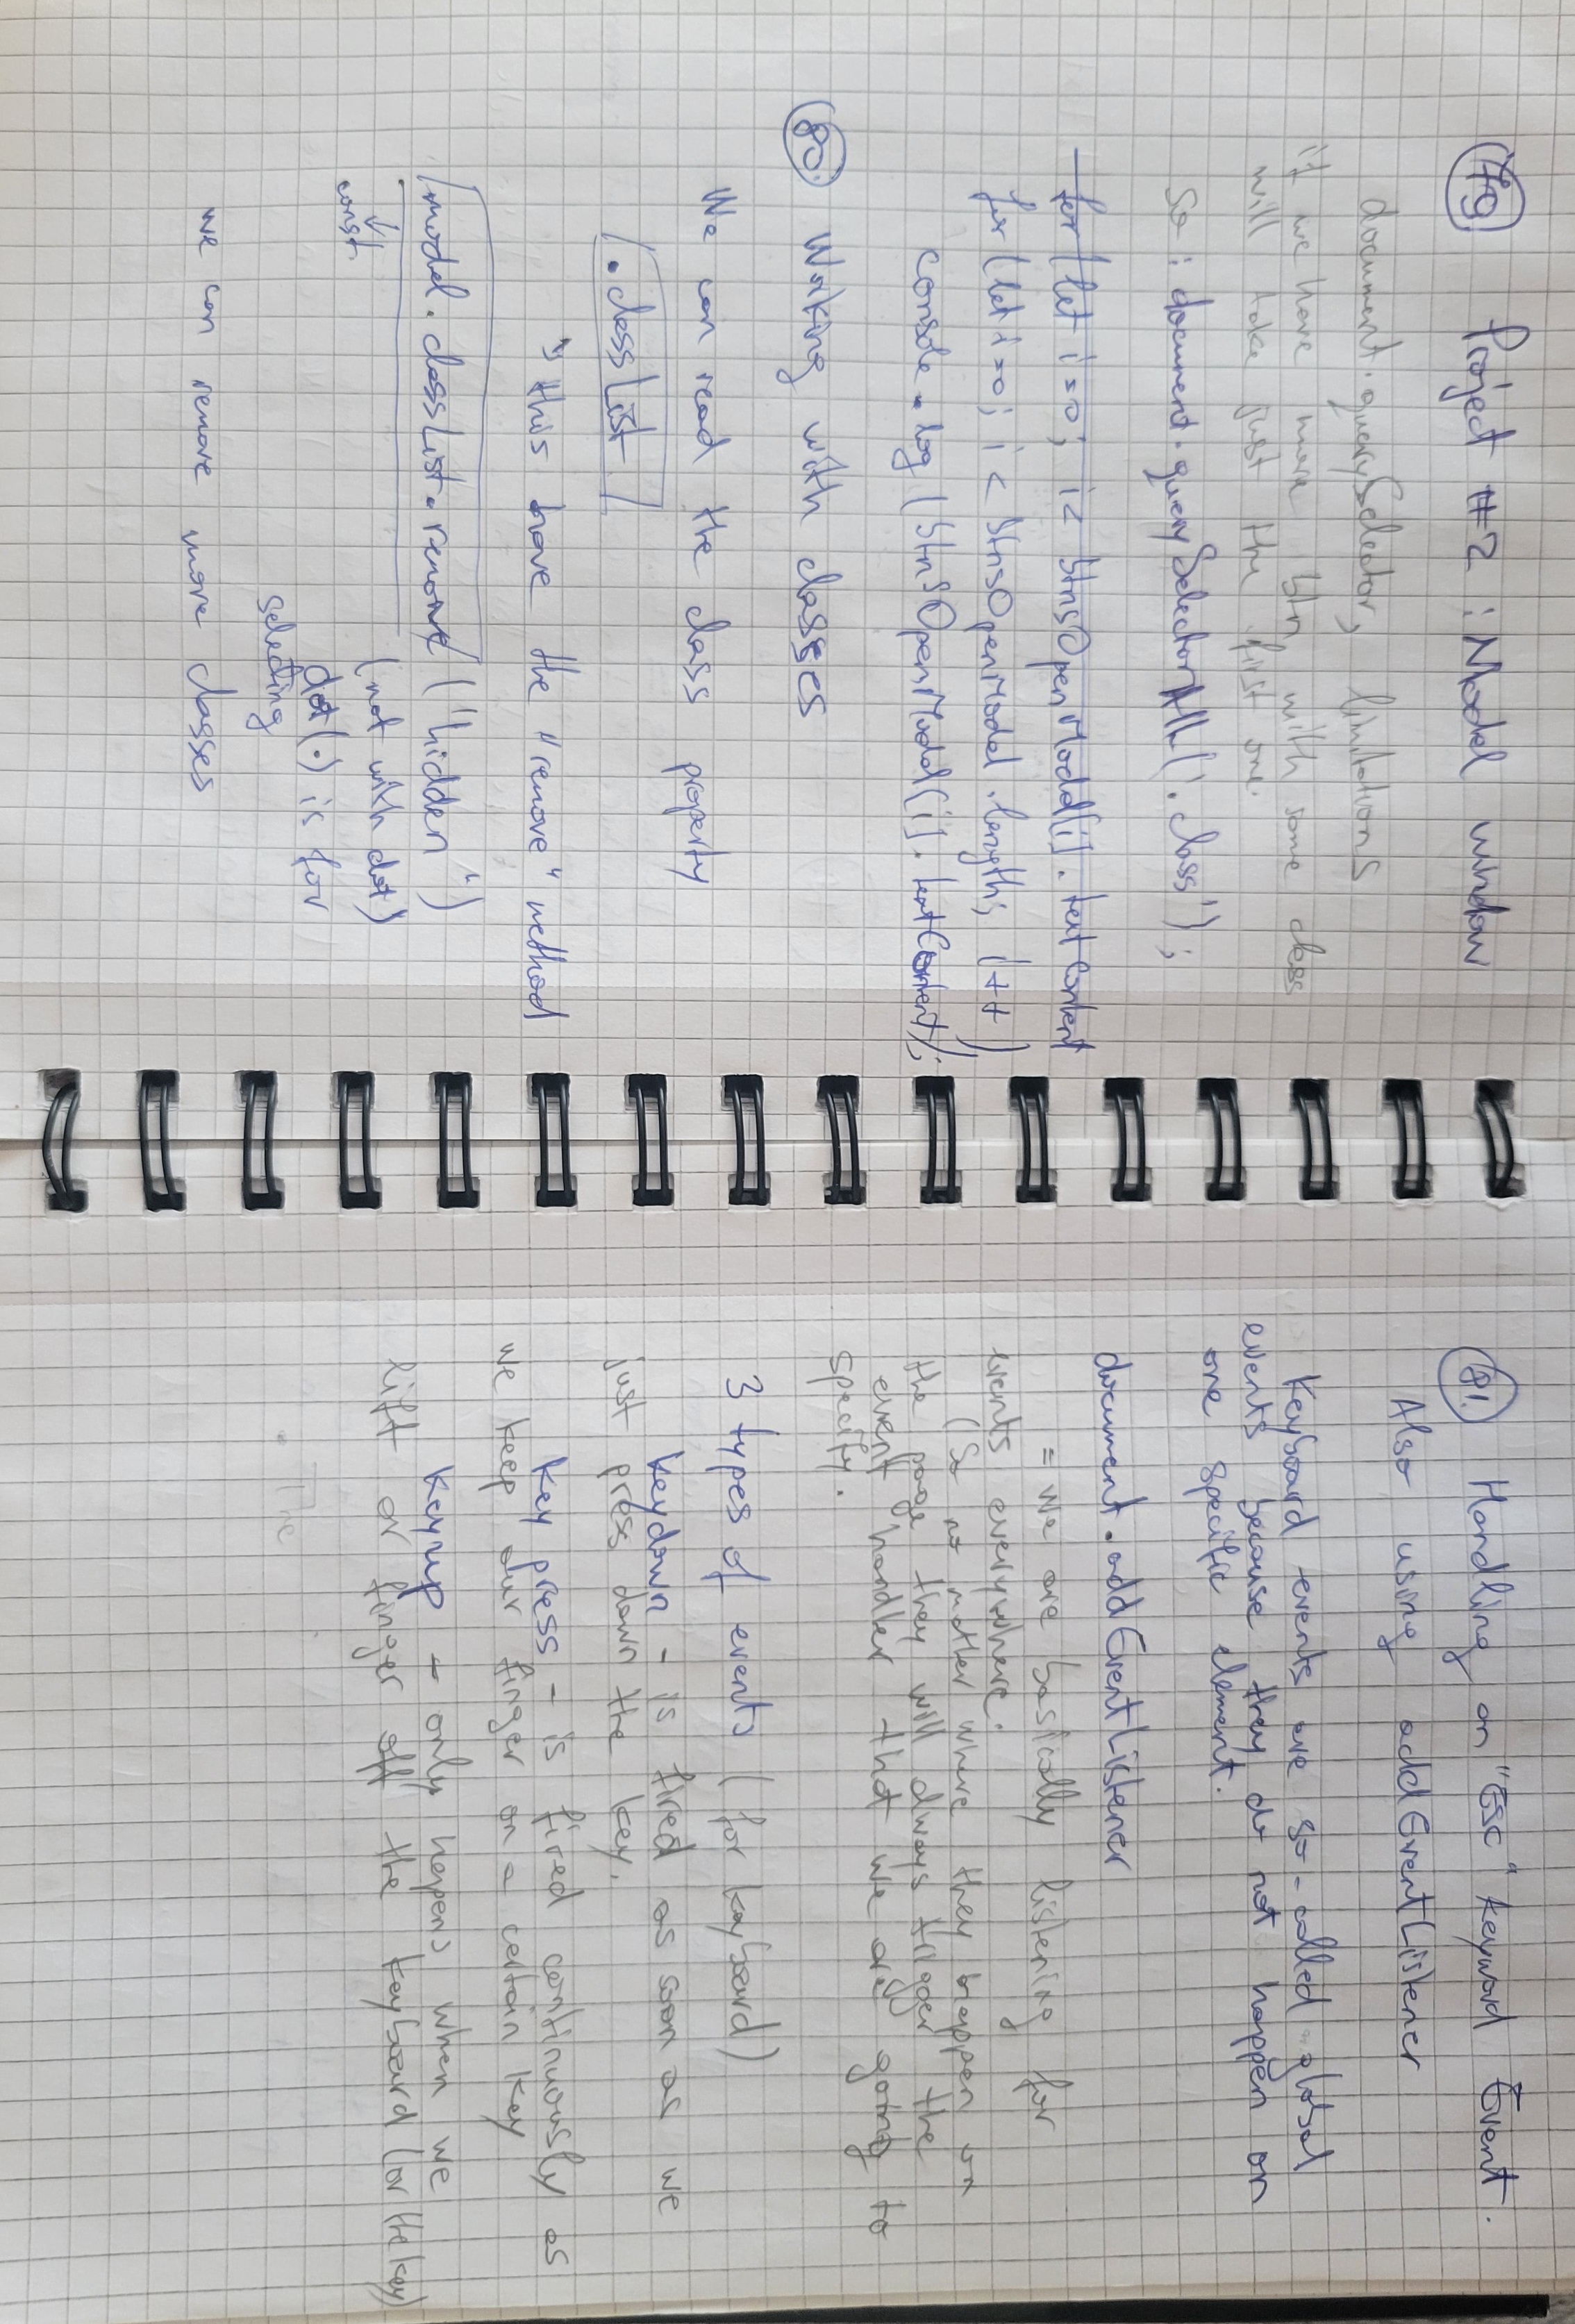 79. Project #2 : Model window
document.querySelector, limitations
if we have more btn with some class
will take just the first one.
So : document.querySelectorAll('.class');
for (let i=0; i< btnsOpenModal[i].textContent
for (let i=0; i < btnsOpenModel.length; i++)
console.log(btnsOpenModal[i].textContent);
80. Working with classes
We can read the class property
.classList
↳ this have the "remove" method
model.classList.remove ('hidden')
↓
const.
(not with dot)
dot (.) is for
selecting
we can remove more classes
81. Handling an "Esc" keyword Event.
Also using addEventListener
Keyboard events are so-called global
events because they do not happen on
one specific element.
document.addEventListener
= we are basically listening for
events everywhere.
(So no matter where they happen on
the page they will always trigger the
event handler that we are going to
specify.
3 types of events (for keyboard)
keydown - is fired as soon as we
just press down the key.
key press - is fired continuously as
we keep our finger on a certain key
keyup - only happens when we
lift or finger off the keyboard (or the key)
The